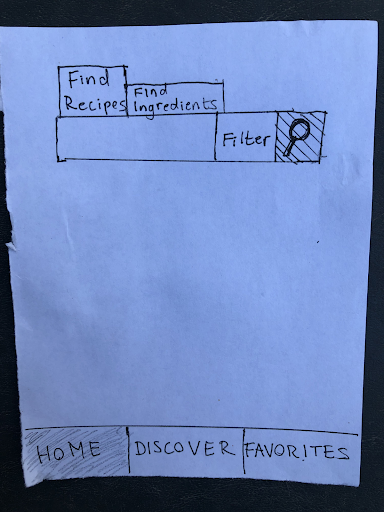 Find
Recipes
Find
Ingredients
Filter
HOME DISCOVER FAVORITES